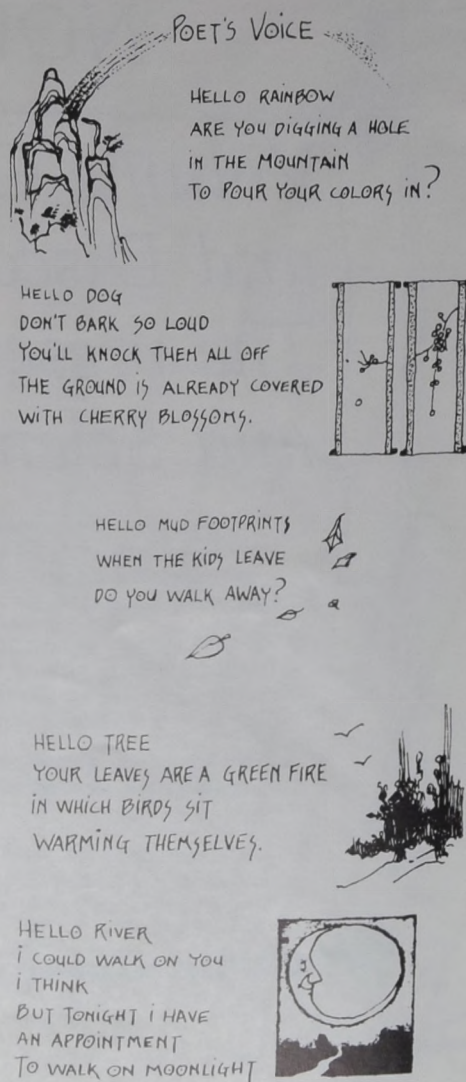 POET'S VOICE
HELLO RAINBOW
ARE YOU DIGGING A HOLE
IN THE MOUNTAIN
TO POUR YOUR COLORS IN?
HELLO DOG
DON'T BARK SO LOUD
YOU'LL KNOCK THEM ALL OFF
THE GROUND IS ALREADY COVERED
WITH CHERRY BLOSSOMS.
HELLO MUD FOOTPRINTS
WHEN THE KIDS LEAVE
DO YOU WALK AWAY?
HELLO TREE
YOUR LEAVES ARE A GREEN FIRE
IN WHICH BIRDS SIT
WARMING THEMSELVES.
HELLO RIVER
i COULD WALK ON YOU
i THINK
BUT TONIGHT i HAVE
AN APPOINTMENT
TO WALK ON MOONLIGHT